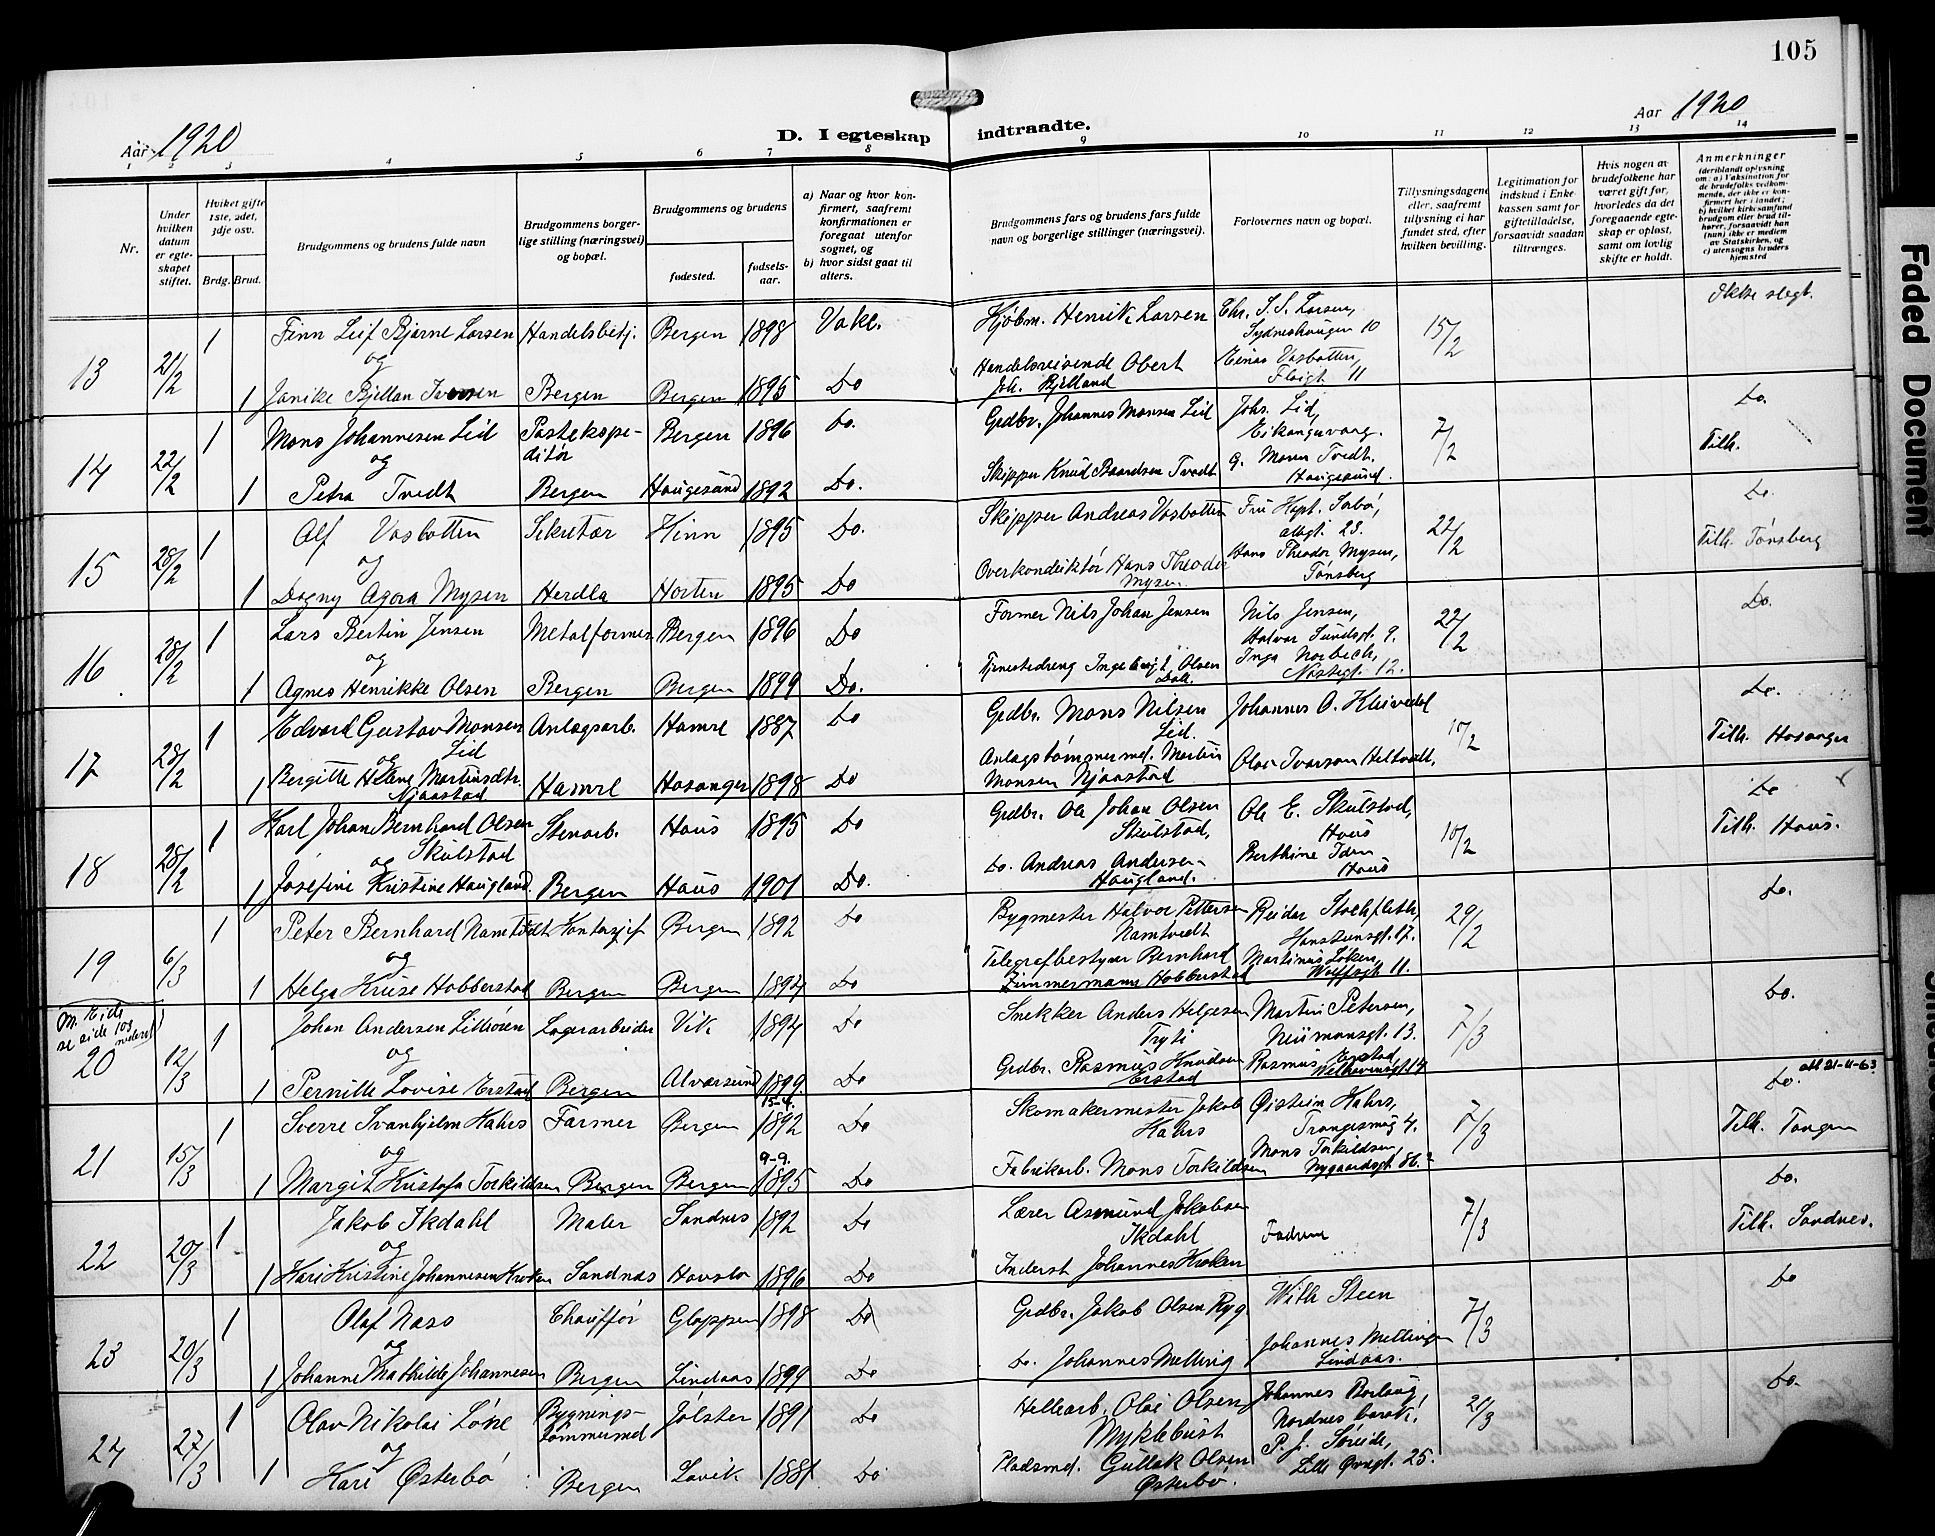 105
Aar 1920
D. I egteskap indtraadte.
Aar 1920
1 2 3 4 5 6 7 8 9 10 11 12 13 14
Nr.
Under hvilken datum er egteskapet stiftet.
Hvilket gifte 1ste, 2det, 3dje osv.
Brdg. Brud.
Brudgommens og brudens fulde navn
Brudgommens borgerlige stilling (næringsvei) og bopæl.
Brudgommens og brudens
fødested.
fødselsaar.
a) Naar og hvor konfirmert, saafremt konfirmationen er foregaat utenfor sognet, og
b) hvor sidst gaat til alters.
Brudgommens fars og brudens fars fulde navn og borgerlige stillinger (næringsvei).
Forlovernes navn og bopæl.
Tillysningsdagene eller, saafremt tillysning ei har fundet sted, efter hvilken bevilling.
Legitimation for indskud i Enkekassen samt for giftetilladelse, forsaavidt saadan tiltrænges.
Hvis nogen av brudefolkene har været gift før, hvorledes da det foregaaende egteskap er opløst, samt om lovlig skifte er holdt.
Anmerkninger (deriblandt oplysning om: a) Vaksination for de brudefolks vedkommende, der ikke er konfirmert her i landet; b) hvilket kirkesamfund brudgom eller brud tilhører, forsaavidt han (hun) ikke er medlem av Statskirken, og c) utensogns bruders hjemsted
13 21/2 1 Finn Leif Bjarne Larsen Handelsbetj. Bergen 1898 Hjőbm. Henrik Larsen Chr. S. S. Larsen, Sydneshaugen 10 15/2 Ikke slegt.
og
1 Bergen Bergen 1895 Do Handelsreisende Obert Joh. Bjelland Einar Vasbotten, 11
14 22/2 1 Mons Johannesen Lid Postekspeditør Bergen 1896 Do. Grdbr. Johannes Monsen Lid Johs. Lid, Eikangervaag. 7/2 Do.
og
1 Petra Tvedt Bergen Haugesund 1892 Do. Skipper Knud Baardsen Tvedt G. Moren Tvedt. Haugesund. Tilh.
15 28/2 1 Alf Vasbotten Sekretær Kinn 1895 Do. Skipper Andreas Vasbotten Fru Kapt. Sabø, 23. 22/2 Do.
og
1 Dagny Agora Mysen Herdla Horten 1895 Do Overkonduktør Hans Theodor Mysen. Hans Theodor Mysen, Tønsberg Tilh. Tønsberg
16 28/2 1 Lars Bertin Jensen Metalformer Bergen 1896 Do Former Nils Johan Jensen Nils Jensen, Halvor Sundsgt. 9. 22/2 Do.
og
1 Agnes Henrikke Olsen Bergen Bergen 1899 Do. Tjenestedreng Ingebrigt Olsen Inga Norbech, Nøstegt. 12.
17 28/2 1 Edvard Gustav Monsen Lid Anlægsarb. Hamre 1887 Do Grdbr. Mons Nilsen Lid. Johannes O. Kleivedal 15/2 Do.
og
1 Bergitte Helene Martinsdtr. Njaastad Hamre Hosanger 1898 Do Anlægstømmermd. Martin Monsen Njaastad Olav Ivarson Tilh. Hosanger
18 28/2 1 Karl Johan Bernhard Olsen Skulstad Stenarb. Haus 1895 Do Grdbr. Ole Johan Olsen Skulstad, Ole E. Skulstad, Haus 10/2 Do
og
1 Josefine Kristine Haugland Bergen Haus 1901 Do. Do. Andreas Andersen Haugland. Berthine Iden Haus Tilh. Haus.
19 6/3 1 Peter Bernhard Namtvedt Kontorsjef Bergen 1892 Do Bygmester Halvor Pettersen Namtvedt Reidar Stochfleth, Hans 17. 29/2 Do.
og
1 Helga Kruse Hobberstad Bergen Bergen 1894 Do Telegrafbestyrer Bernhard Zimmermann Hobberstad Martinus Løken, Wolfsgt 11.
M. Eide se side 103 nederst
20 12/3 1 Johan Andersen Lagerarbeider Vik 1894 Do Snekker Anders Helgesen Tryti Martin Petersen, Neumannsgt. 13. 7/3 Do.
og
1 Pernille Lovise Erstad Bergen Alversund 1899 Do Grdbr. Rasmus Knudsen Erstad Rasmus Erstad Welhavensgt. 14
21 15/3 1 Sverre Svanhjelm Hahrs Farmer Bergen 15-4. 1892 Do Skomakermester Jakob Hahrs Øistein Hahrs, Trangesmug 4. 7/3 Do. 21-11-63
og
1 Margit Kristofa Torkildsen Bergen Bergen 9-9. 1895 Do Fabrikarb. Mons Torkildsen Mons Torkildsen, Nygaardsgt. 86. Tilh. Tangen
22 20/3 1 Jakob Ikdahl Maler Sandnes 1892 Do Lærer Asmund Jakobsen Ikdahl Fædrene 7/3 Do.
og
1 Kari Kristine Johannesen Kroken Sandnæs Hafslo 1896 Do Inderst Johannes Kroken Tilh. Sandnes.
23 20/3 1 Olaf Naso Chauffør Gloppen 1898 Do Grdbr. Jakob Olsen Ryg With Steen 7/3 Do
og
1 Johanne Mathilde Johannesen Bergen Lindaas 1899 Do Do. Johannes Melling Johannes Mellingen Lindaas.
24 27/3 1 Olav Nikolai Løse Bygningstømmermd Jølster 1891 Do Hellearb. Ole Olsen Myklebust Johannes Borlaug, Nordnes barak. 21/3 Do.
og
1 Kari Østerbø Bergen Lavik 1881 Do Pladsmd. Gullak Olsen Østerbø. P. J. Søreide, Lille Øvregt. 25.
Faded Document